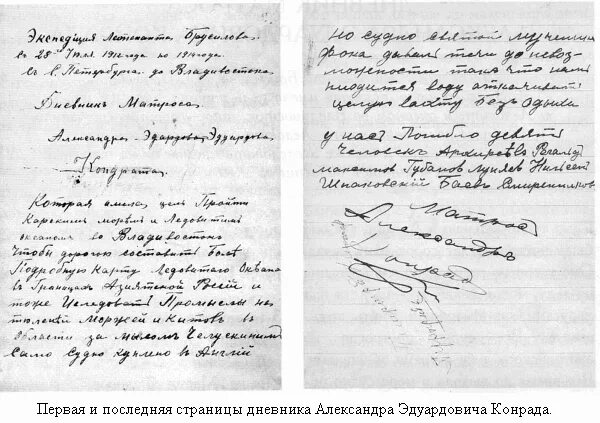 Экспедиція Лейтенанта Брусилова
съ 28 Іюля 1912 года по 1914 года
съ С. Петербурга до Владивостока
Дневник Матроса
Александра Эдардова Эдуардова
Кондрата
Которая имела цель Пройти
Карскимъ моремъ и Ледовитимъ
океаномъ во Владивостокъ
Чтобы дорогою составить Болѣ
Подробную Карту Ледовитаго Океана
въ Границах Азіятской Росіи и
тоже Иследовать Промыслы на
тюленей Моржей и Китовъ в
области за мысомъ Челускинимъ
Само судно куплено в Англіи
но судно святой мученицы
фока дывали течи до невоз-
можности такъ что нам
приходится воду откачивать
целую вахту безъ одыха
у насъ Погибло девять
человекъ Архиреѣво
Максимов Губанов Луняев Нильсен
Шпаковский Баев Смиренников
Матрос
Александръ
Конрадъ
Первая и последняя страницы дневника Александра Эдуардовича Конрада.